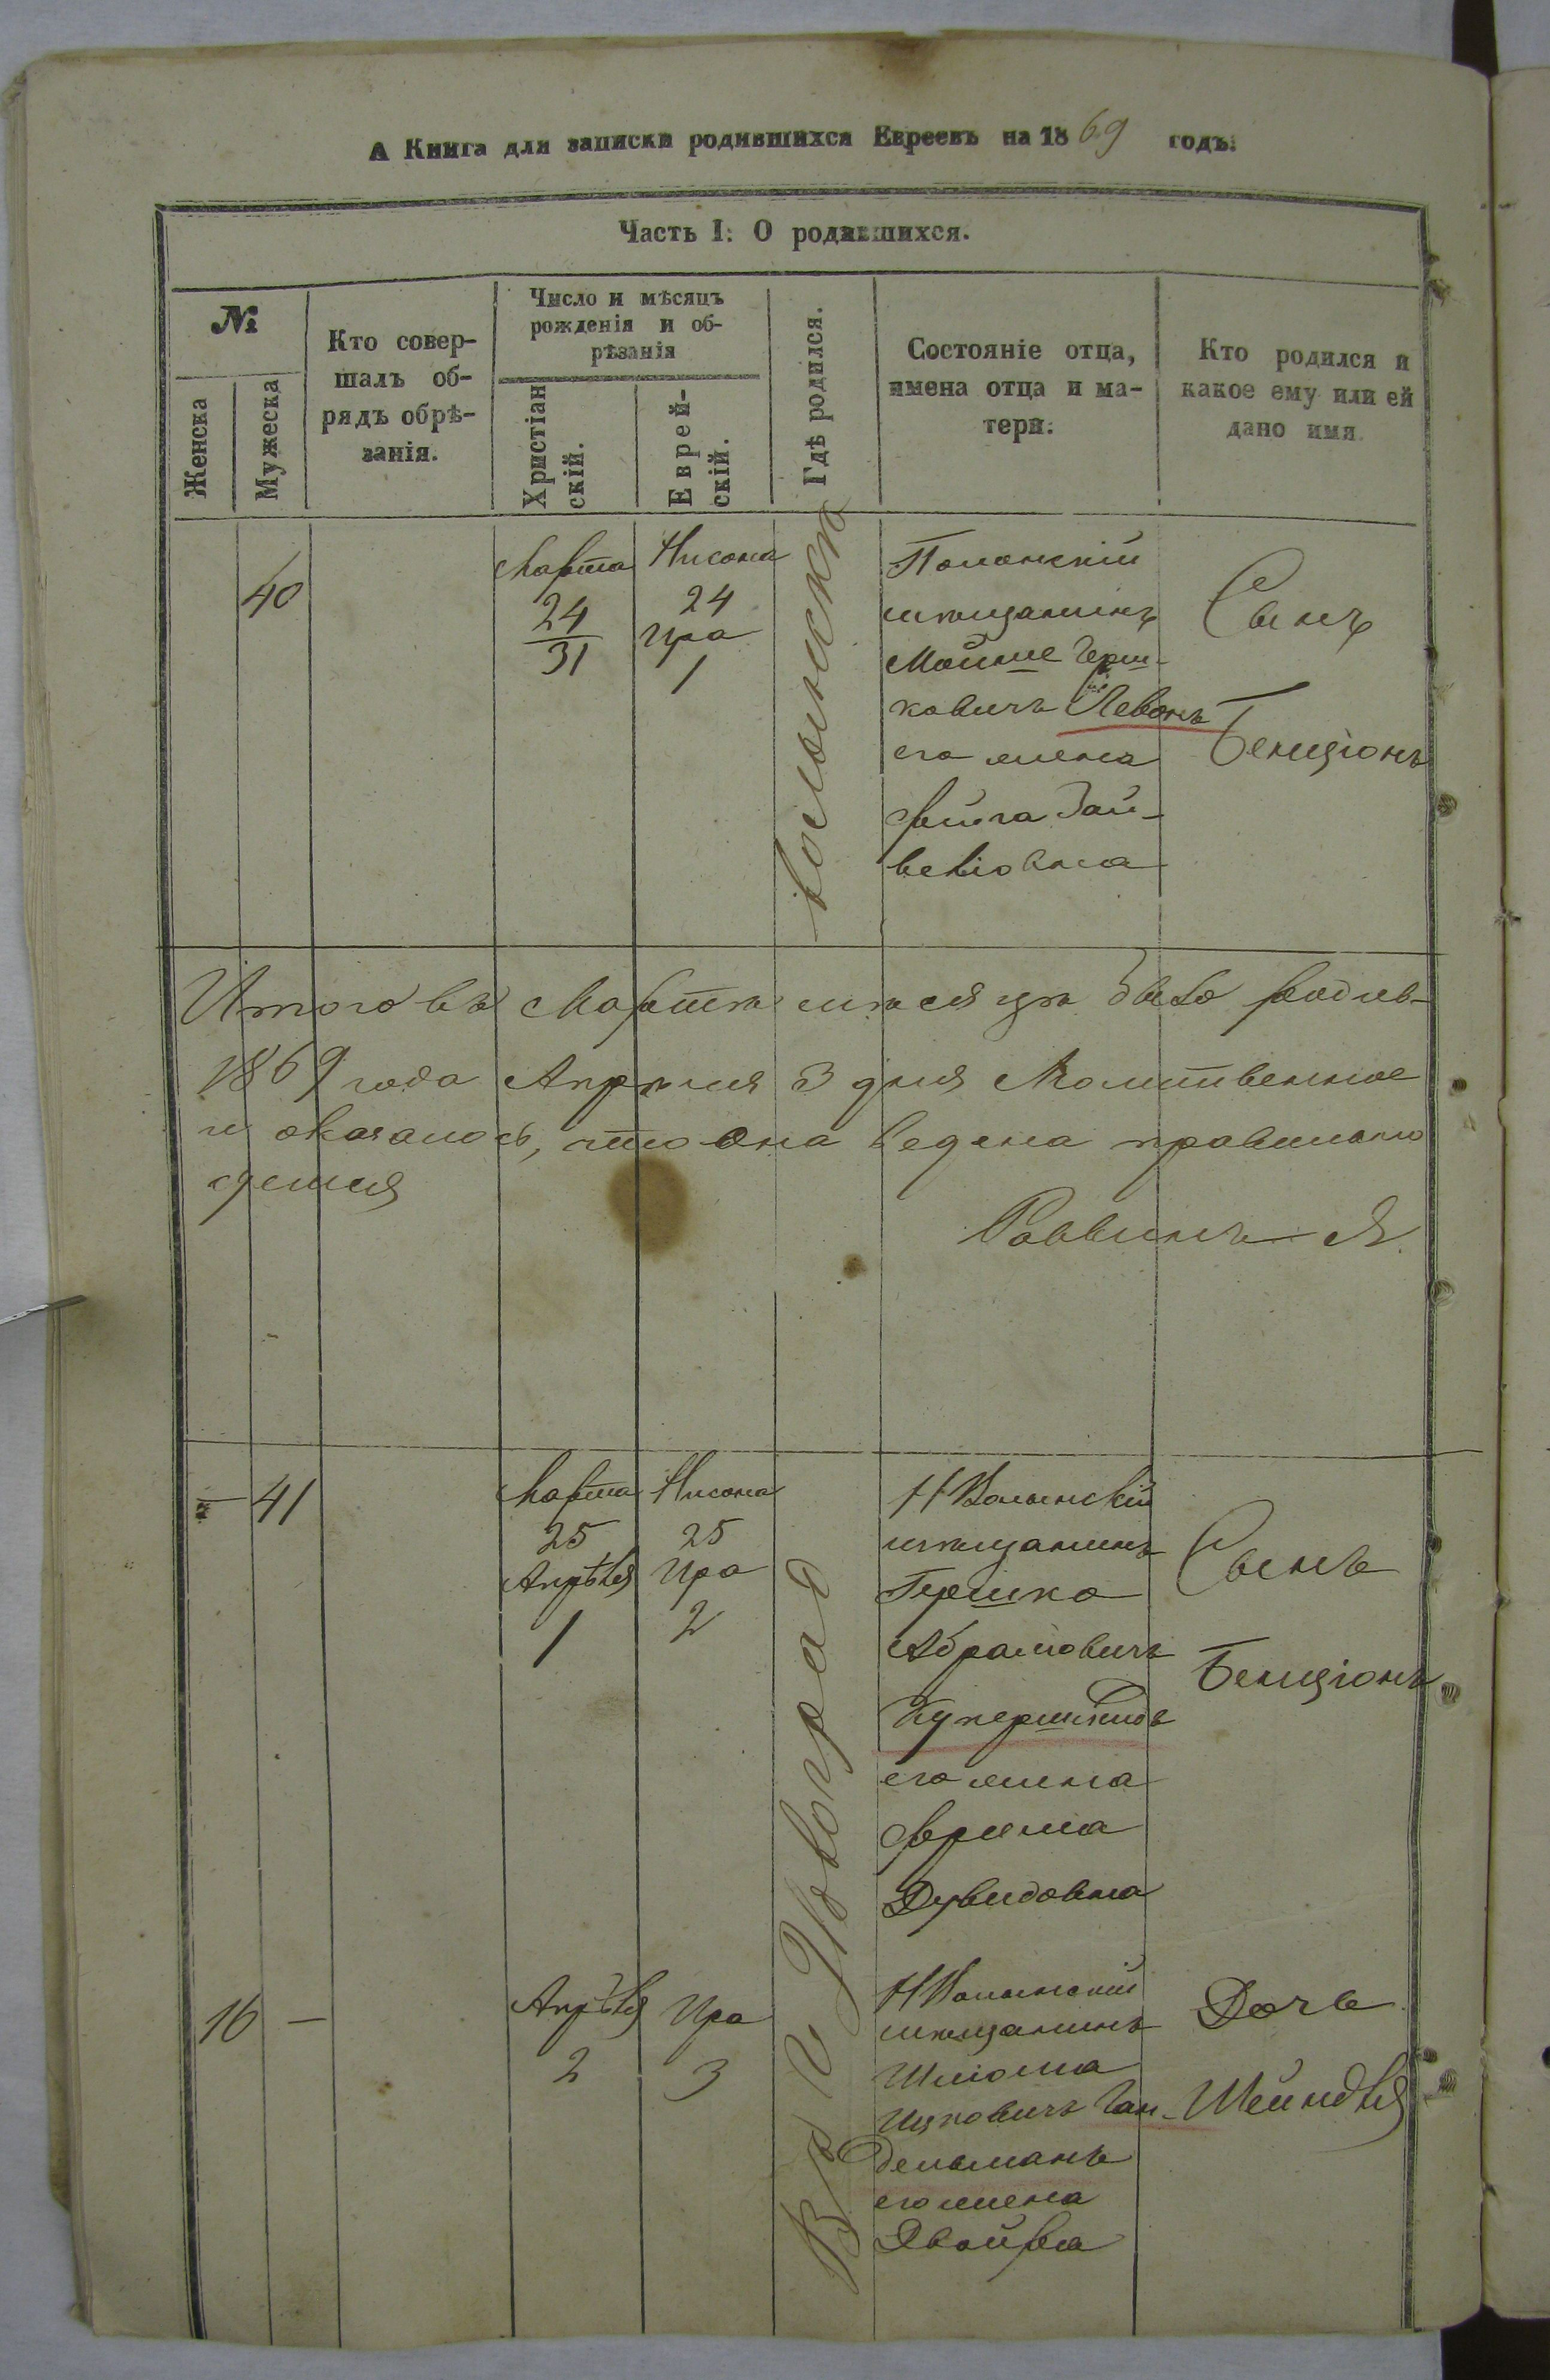 А Книга для записки родившихся Евреевъ на 1869 годъ.
Часть I: О родившихся.
№
Женска
Мужеска
Кто совер-
шалъ об-
рядъ обрѣ-
занія.
Число и мѣсяцъ
рожденія и об-
рѣзанія
Христіан
скій.
Еврей-
скій.
Гдѣ родился.
Состояніе отца,
имена отца и ма-
тери.
Кто родился и
какое ему или ей
дано имя.
40
Марта
24
31
Нисона
24
Ира
1
Полонскій
мѣщанинъ
Мойше Герш-
ковичъ
его жена
Фейга Зай-
велiовна
Сынъ
Бенціонъ
Итого въ Мартѣ мѣсяцѣ было родив-
1869 года Апрѣля 3 дня Молитвенное
и оказалось, что она ведена правильно
Раввинъ Я.
— 41
Марта
25
Апрѣля
1
Нисона
25
Ира
2
Въ г. Новоград
волынскѣ
НВолынскій
мѣщанинъ
Гершко
Абрамовичъ
Купершмидъ
его жена
Фрима
Дувидовна
Сынъ
Бенціонъ
16 —
Апрѣля
2
Ира
3
НВолынскій
мѣщанинъ
Шлiома
Ицковичъ Ган-
дельманъ
его жена
Двойра
Дочь
Шейндля